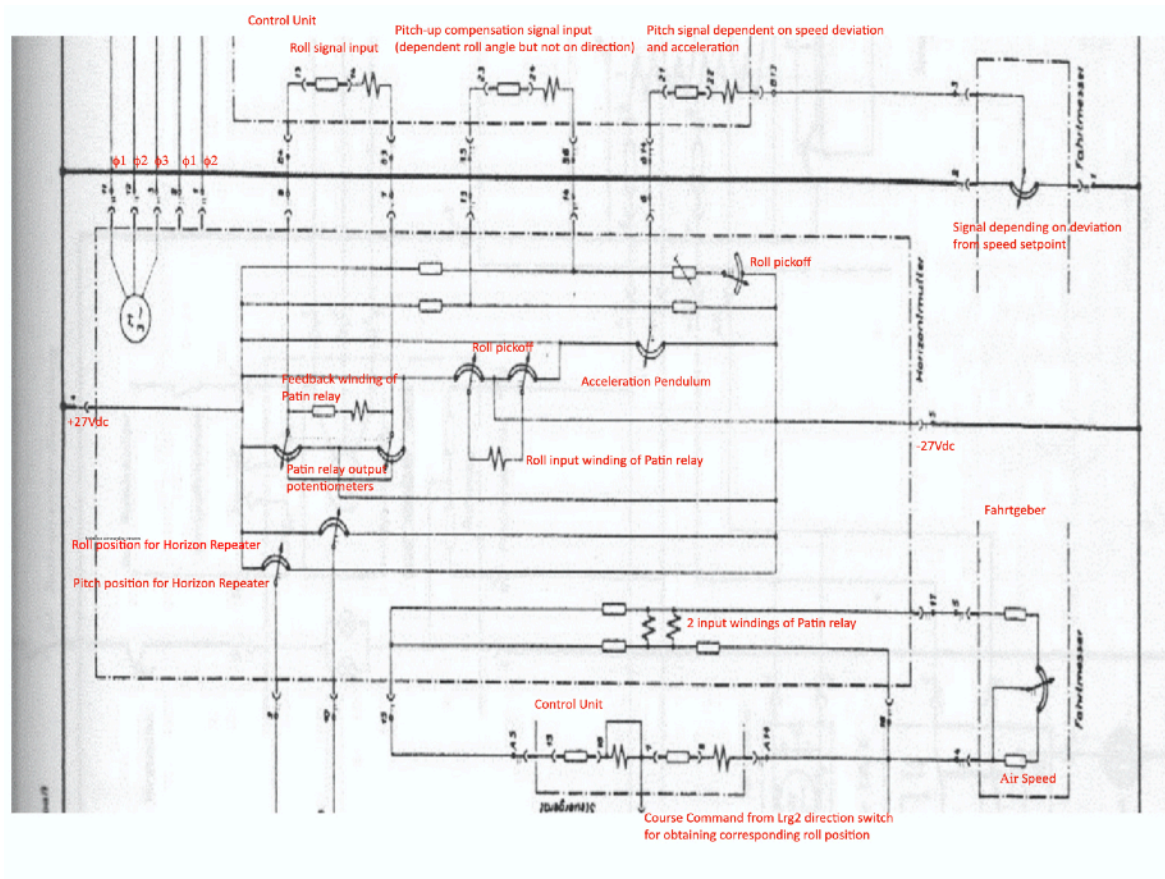 Control Unit
Roll signal input
Pitch-up compensation signal input
(dependent roll angle but not on direction)
Pitch signal dependent on speed deviation
and acceleration
15
23
21
22
Fahrtmesser
ϕ1
ϕ2
ϕ3
ϕ1
ϕ2
2
1
8
7
13
14
6
Signal depending on deviation
from speed setpoint
Roll pickoff
Horizontmutter
Roll pickoff
Acceleration Pendulum
Feedback winding of
Patin relay
+27Vdc
-27Vdc
Roll input winding of Patin relay
Patin relay output
potentiometers
Fahrtgeber
Roll position for Horizon Repeater
Pitch position for Horizon Repeater
2 input windings of Patin relay
17
15
Fahrtmesser
Control Unit
Air Speed
Steuergerät
Course Command from Lrg2 direction switch
for obtaining corresponding roll position